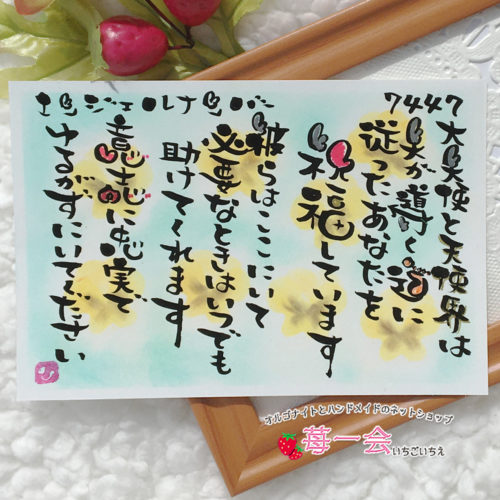 エンジェルナンバー 7447
大天使と天使界は
天が導く道に
従ったあなたを
祝福しています
彼らはここにいて
必要なときはいつでも
助けてくれます
意志に忠実で
ゆるがずにいてください
オルゴナイトとハンドメイドのネットショップ
苺一会 いちごいちえ